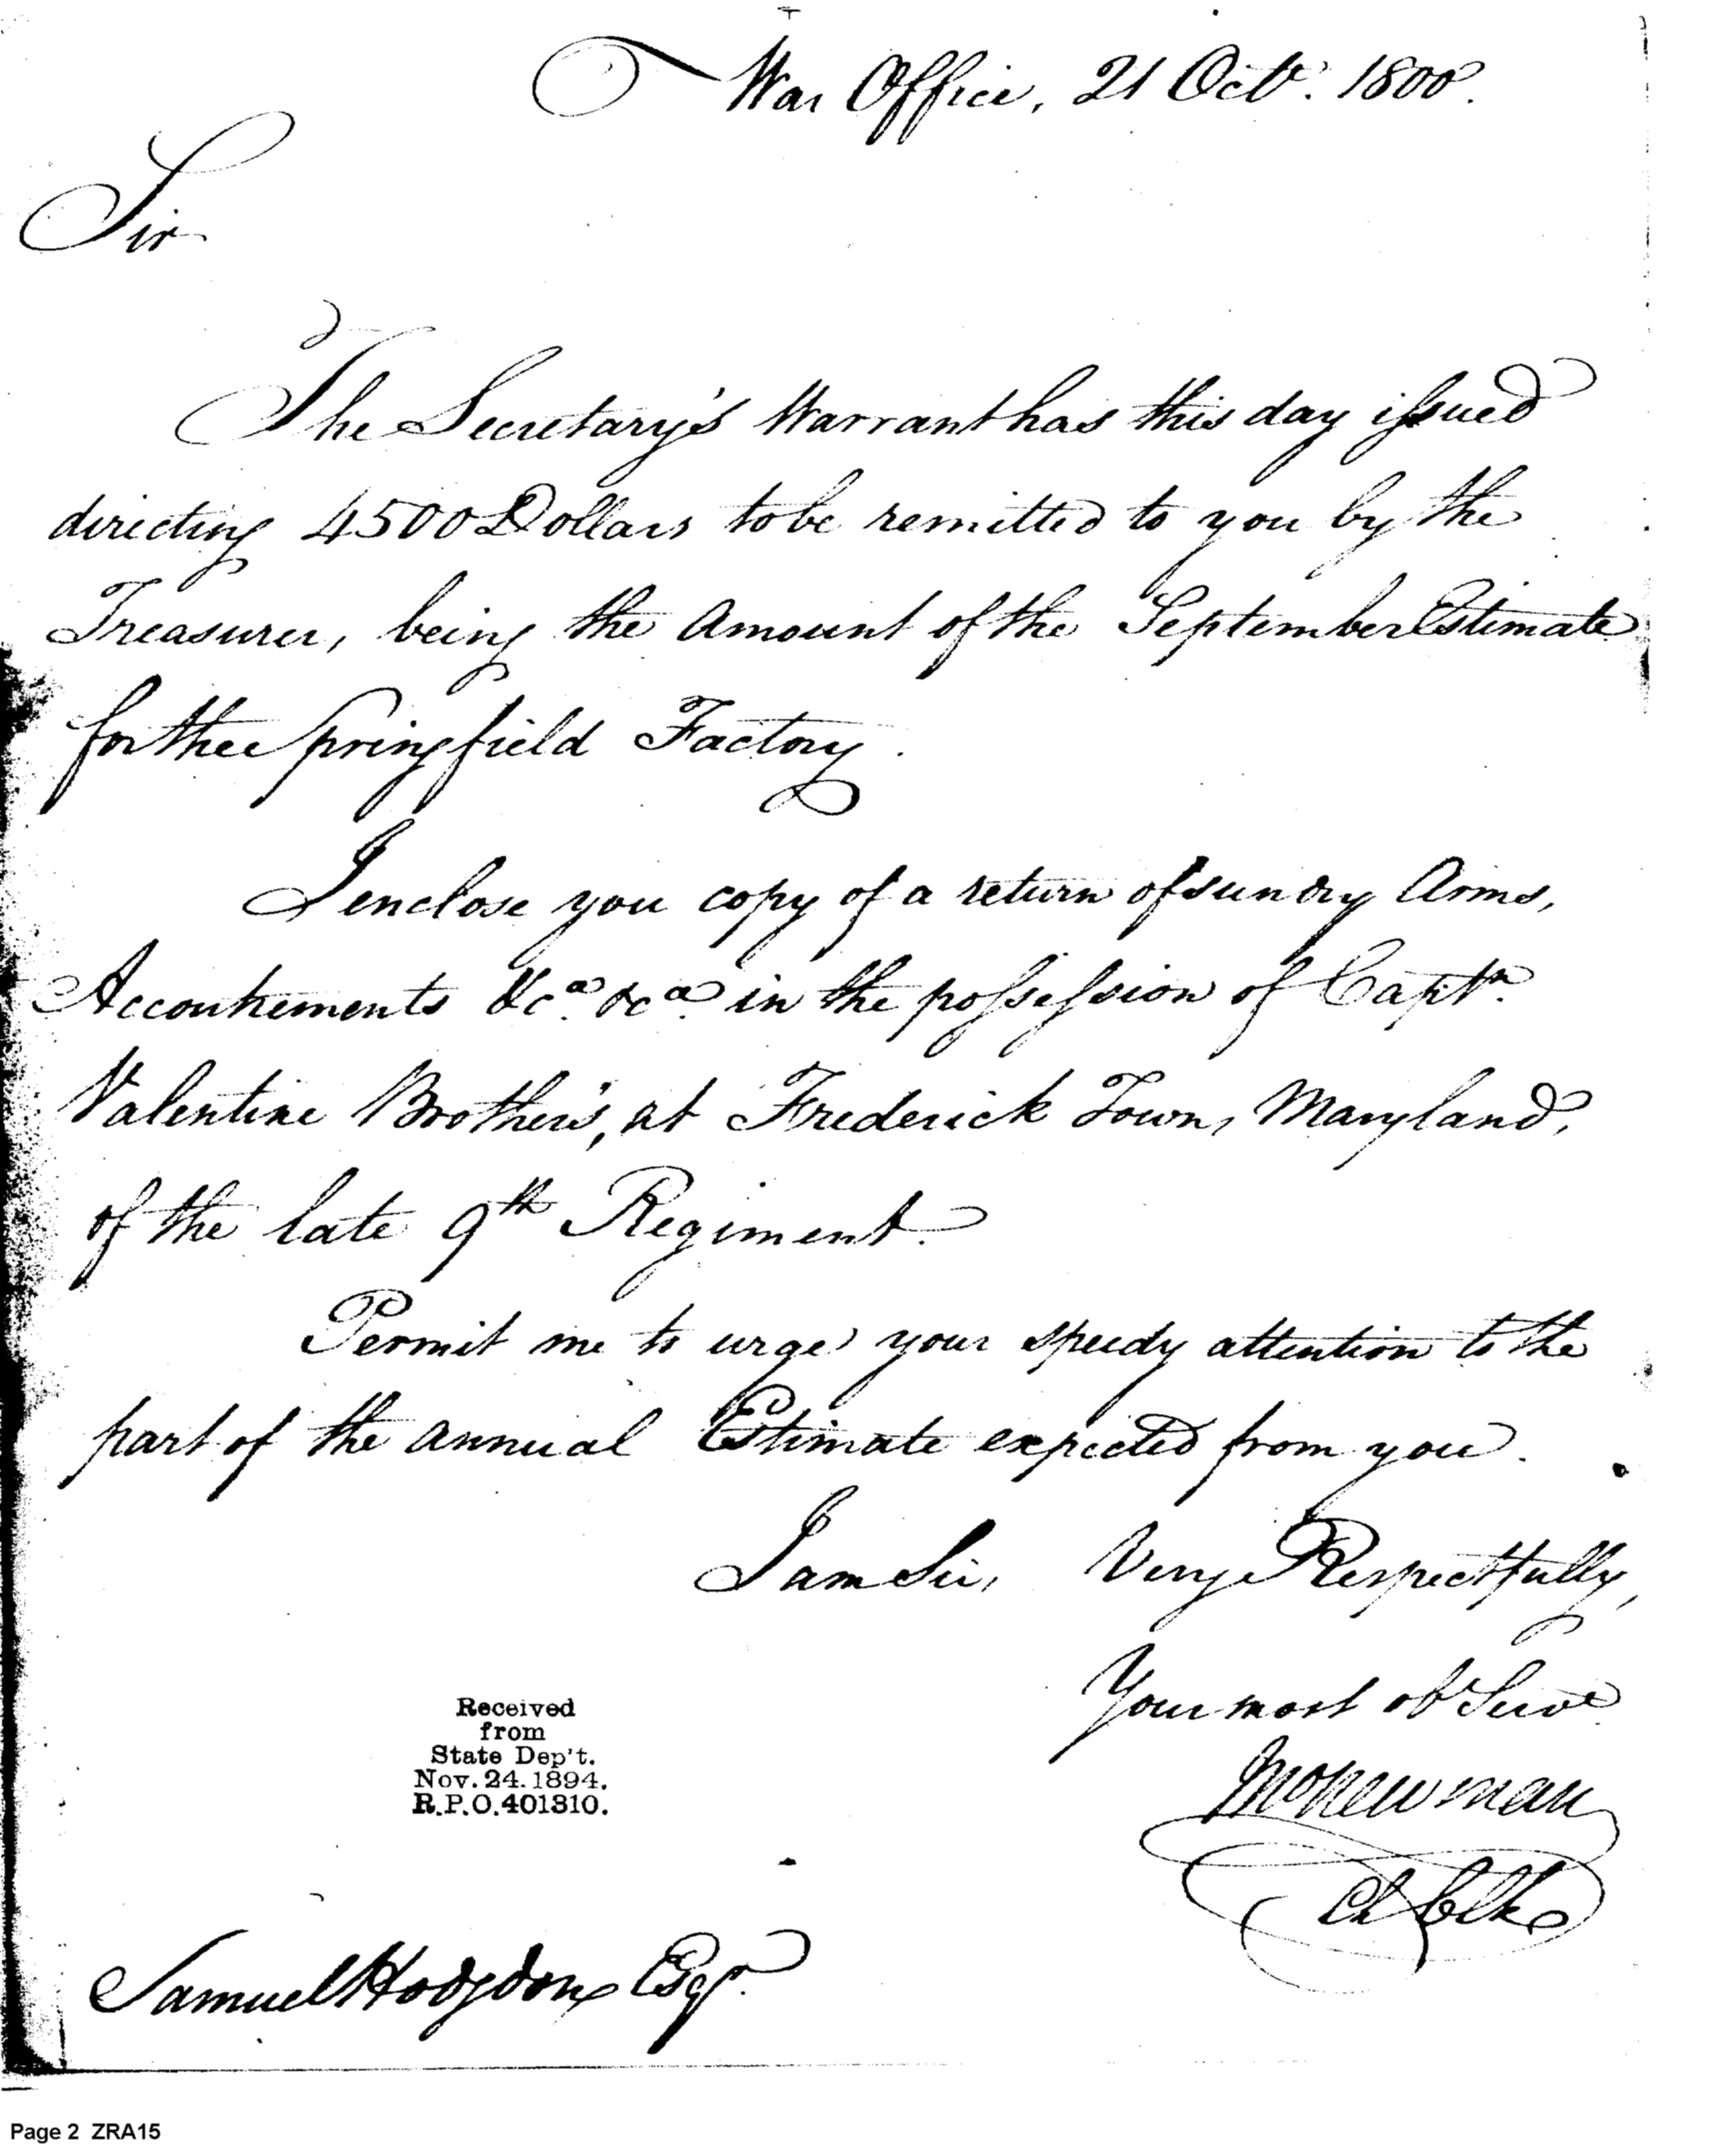 War Office, 21 Octr. 1800.
Sir
The Secretary's Warrant has this day issued
directing 4500 Dollars to be remitted to you by the
Treasurer, being the Amount of the September Estimate
for the Springfield Factory.
I enclose you copy of a return of sundry Arms,
Accoutrements &ca. &ca. in the possession of Captn.
Valentine Brother's, at Frederick Town, Maryland,
of the late 9th Regiment.
Permit me to urge your speedy attention to the
part of the annual Estimate expected from you.
I am Sir, Very Respectfully,
Your most obt Servt
Newman
Ch Clk
Received
from
State Dep't.
Nov. 24. 1894.
R.P.O. 401310.
Samuel Hodgdon Esqr.
Page 2 ZRA15